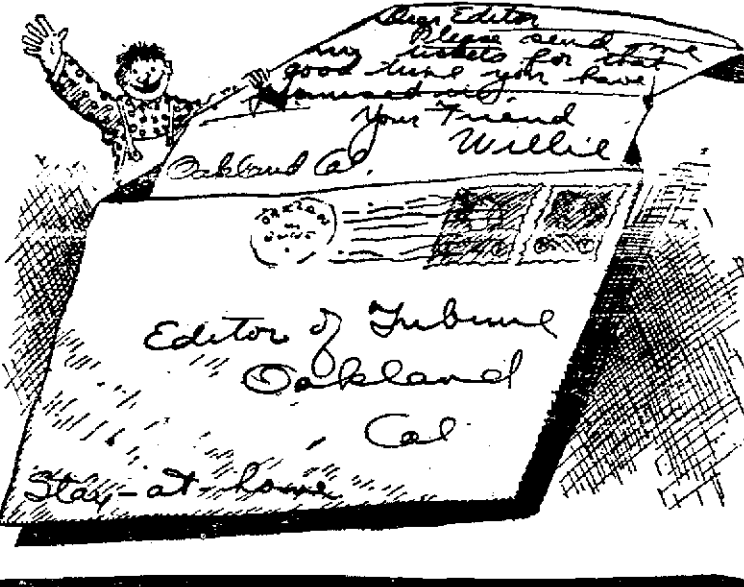 Dear Editor
Please send me
my tickets for that
good time you have
promised us.
Your Friend
Willie
Oakland Cal.
Editor of Tribune
Oakland
Cal
Stay-at-home